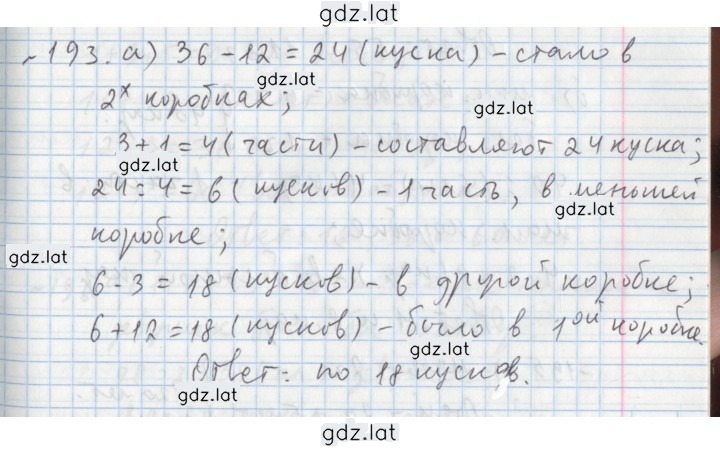 gdz.lat
№193. а) 36 - 12 = 24 (куска) - стало в
gdz.lat
2х коробках;
gdz.lat
3 + 1 = 4 (части) - составляют 24 куска;
gdz.lat
24 : 4 = 6 (кусков) - 1 часть, в меньшей
gdz.lat
коробке;
gdz.lat
6 - 3 = 18 (кусков) - в другой коробке;
gdz.lat
6 + 12 = 18 (кусков) - было в 1ой коробке.
gdz.lat
Ответ: по 18 кусков.
gdz.lat
gdz.lat